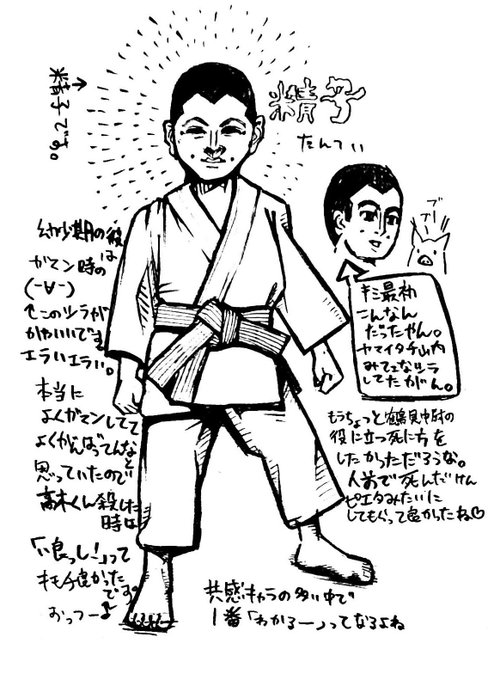 精子
たんてい
精子です。
幼少期の彼は
ガマン時の
(-∀-)
このツラが
かわいいです
エライエライ。
本当に
よくガマンしてて
よくがんばってんなと
思っていたので
高木くん殺した
時は
「い良っし!」って
キモチ良かった
です。
おっつー
ブブー
キミ最初
こんなん
だったやん。
ヤマイタチ山内
みてぇなツラ
してたがん。
もうちょっと鶴見中尉の
役に立つ死に方を
したかっただろうな。
人前で死んだけん
ピエタみたいに
してもらって良かったね♡
共感キャラの多い中で
1番「わかるー」ってなるよね